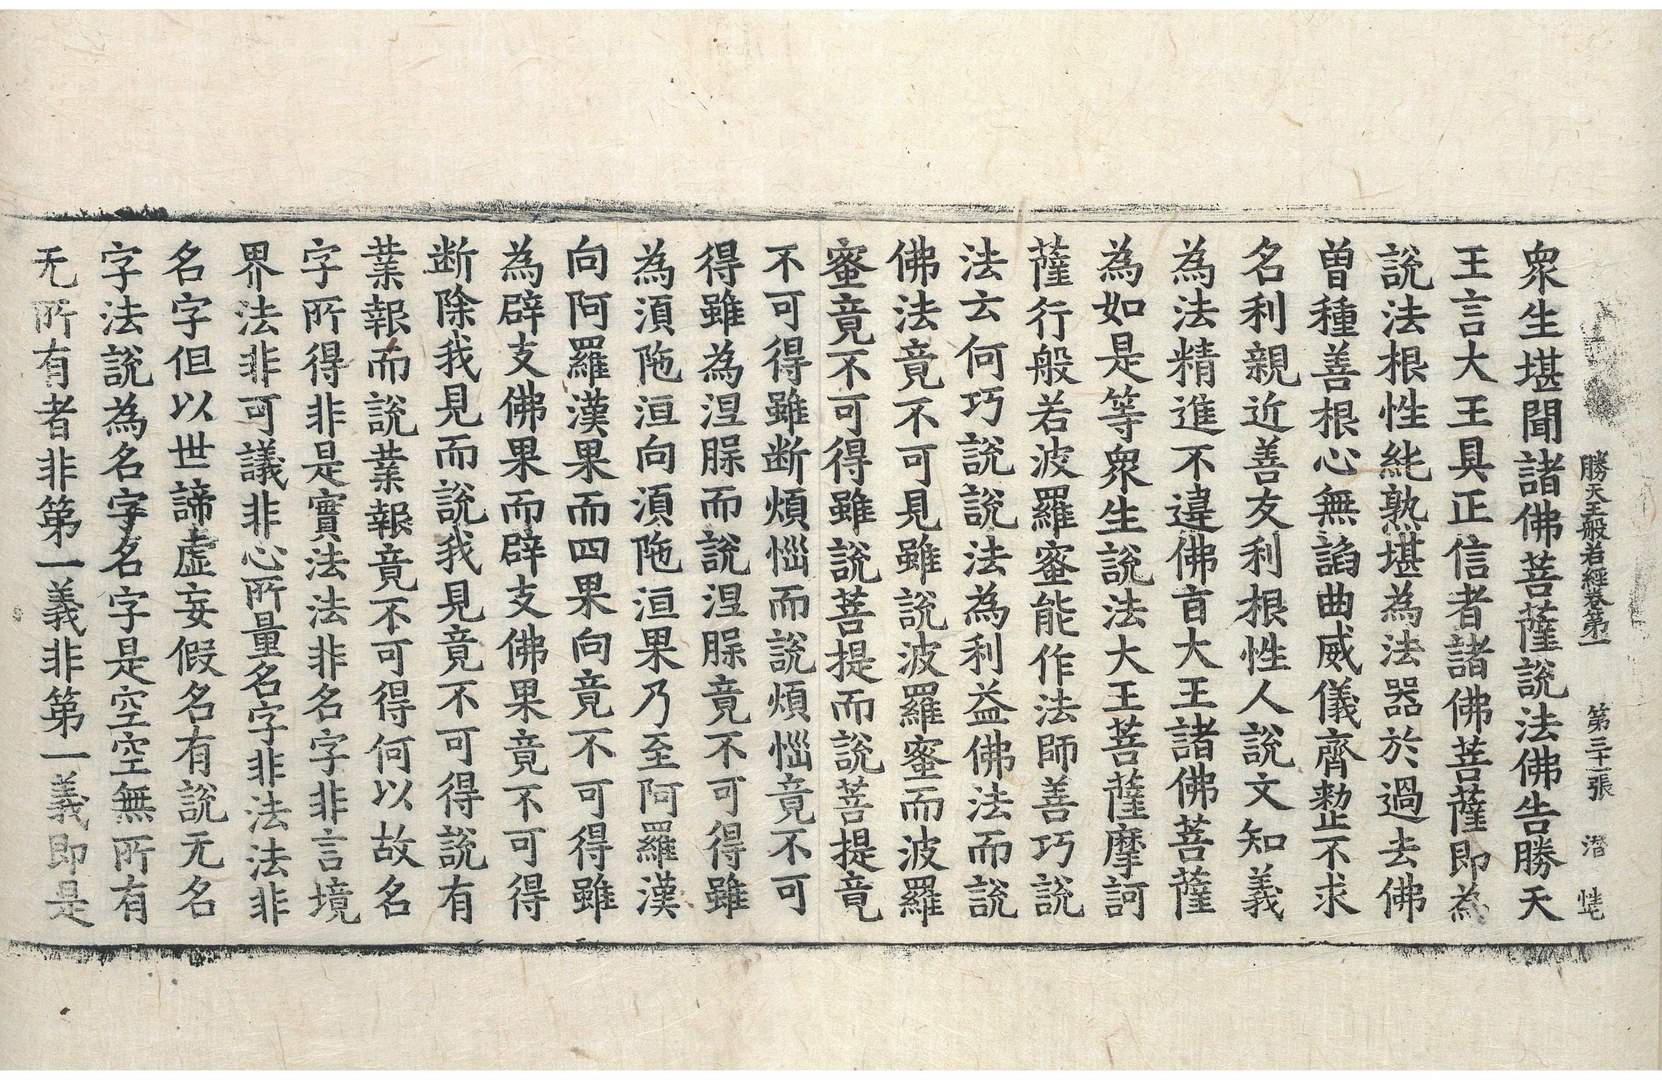 勝天王般若經卷第一 第三十一張 潛
衆生堪聞諸佛菩薩說法佛告勝天
王言大王具正信者諸佛菩薩即為
說法根性純熟堪為法器於過去佛
曽種善根心無謟曲威儀齊整不求
名利親近善友利根性人說文知義
為法精進不違佛㫖大王諸佛菩薩
為如是等衆生說法大王菩薩摩訶
薩行般若波羅蜜能作法師善巧說
法云何巧說說法為利益佛法而說
佛法竟不可見雖說波羅蜜而波羅
蜜竟不可得雖說菩提而說菩提竟
不可得雖断煩惱而說煩惱竟不可
得雖為涅槃而說涅槃竟不可得雖
為湏陁洹向湏陁洹果乃至阿羅漢
向阿羅漢果而四果向竟不可得雖
為辟支佛果而辟支佛果竟不可得
断除我見而說我見竟不可得說有
業報而說業報竟不可得何以故名
字所得非是實法法非名字非言境
界法非可議非心所量名字非法法非
名字但以世諦虛妄假名有說无名
字法說為名字名字是空空無所有
无所有者非第一義非第一義即是